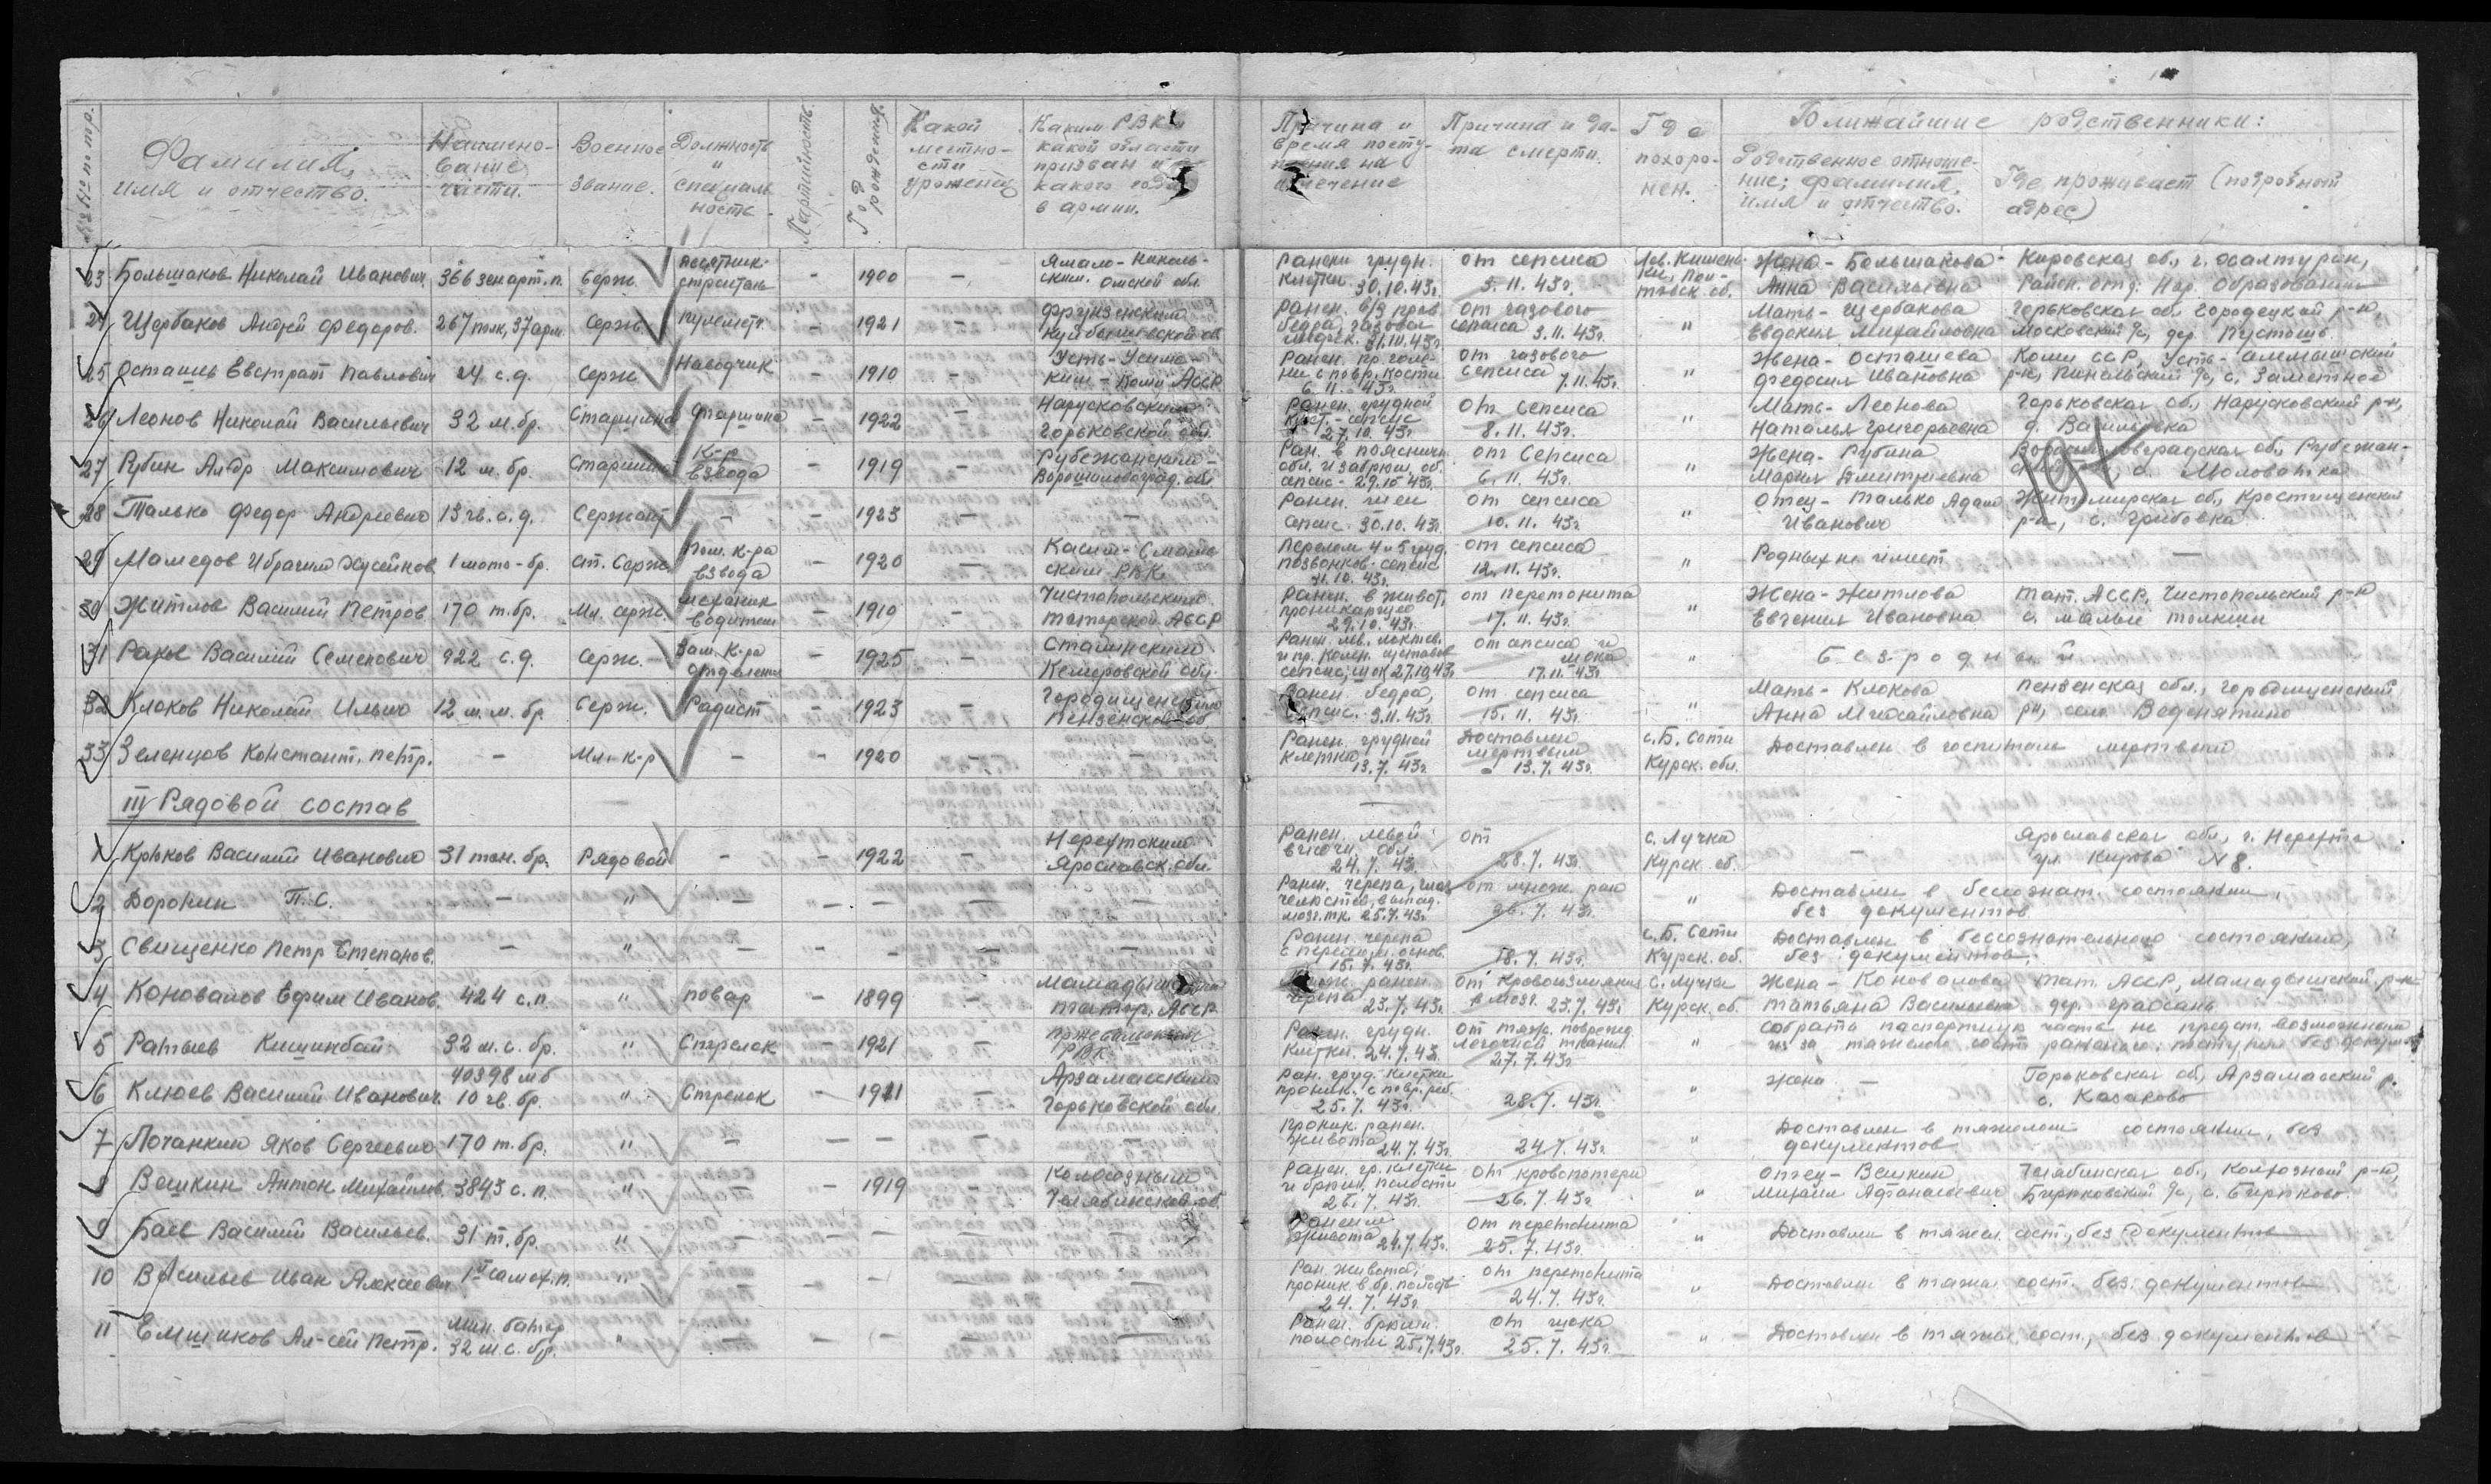 №№ п/пор.
Фамилия, имя и отчество.
Наименование части.
Военное звание.
Должность и специальность.
Партийность.
Год рождения.
Какой местности уроженец
Каким РВК и какой области призван и какого года в армии.
Причина и время поступления на излечение
Причина и дата смерти.
Где похоронен.
Ближайшие родственники:
Родственное отношение; фамилия, имя и отчество.
Где проживает (подробный адрес)
23 Большаков Николай Иванович 366 зен арт. п. Серж. – 1900 – Омской обл. Ранен. грудн. клетки 30.10.43г. От сепсиса 5.11.43г. Жена - Большакова Анна Васильевна Кировская об., г. Халтурин, Район. отд. Нар. Образования
24 Щербаков Андрей Федоров. 267 полк, 37 арм. Серж. пулеметч. – 1921 – Фрунзенским Куйбышевской об. 31.10.43г. от газового сепсиса 3.11.43г. " Мать - Щербакова Евдокия Михайловна Горьковская об., Городецкий р-н, Московский с/с, дер. Пустошь.
25 Осташев Евстрат Павлович 24 с.д. Серж Наводчик – 1910 – Коми АССР Ранен. пр. голени с повр. кости 6.11.43г. от газового сепсиса 7.11.43г. " Жена - Осташева Федосия Ивановна Коми ССР, с. Заметное
26 Леонов Николай Васильевич 32 м.бр. Старшина Старшина – 1922 – Нарусковским Горьковской обл. Ранен. грудной клет. - сепсис 27.10.43г От сепсиса 8.11.43г. " Мать - Леонова Наталья Григорьевна Горьковская об., Нарусковский р-н, д. Васильевка
27 Рубин Ал-др Максимович 12 м. бр. Старшина К-р взвода – 1919 – Рубежанским - Ворошиловоград. об. Ран. в поясничн. обл. и забрюш. об. сепсис - 29.10.43г от Сепсиса 6.11.43г. " Жена - Рубина Мария Дмитриевна Ворошиловградская об., Рубежан-
197
28 Талько Федор Андреевич 13 гв. с.д. Сержант – – 1923 – – Ранен. шеи Сепсис 30.10.43г. от сепсиса 10.11.43г. " Отец - Талько Адам Иванович Житомирская об., р-н, с. Грибовка
29 Мамедов Ибрагим Хусейнов 1 мото-бр. Ст. Серж. Пом. к-ра взвода – 1920 – Касим-Смаиль- ским РВК. Перелом 4 и 5 груд. позвонков - сепсис 31.10.43г. от сепсиса 12.11.43г. " Родных не имеет –
30 Житлов Василий Петров. 170 т.бр. Мл. серж. механик водитель – 1919 – Чистопольским Татарской АССР Ранен. в живот, проникающее 29.10.43г. от перетонита 17.11.43г. " Жена - Житлова Евгения Ивановна Тат. АССР, Чистопольский р-н с. Малые Толкиши
31 Василий Семенович 922 с.д. серж. Зам. к-ра отделения – 1925 – Сталинским Кемеровской обл. Ранен. лев. локтев. и пр. колен. суставов сепсис, шок 27.10.43г от сепсиса и шока 17.11.43г. " Безродный
32 Клоков Николай Ильич 12 м.м. бр. Серж. Радист – 1923 – Городищенским Пензенской об Ранен. бедра, Сепсис. 3.11.43г. от сепсиса 15.11.43г. " Мать - Клокова Анна Михайловна Пензенская обл., Городищенский р-н, село Веденяпино
33 Зеленцов Констант. Петр. – Мл. к-р – – 1920 – – Ранен. грудной клетки 13.7.43г Доставлен мертвым 13.7.43г. с. Б. Сети Курск. обл. Доставлен в госпиталь мертвым
III Рядовой состав
1 Крюков Василий Иванович 31 тан. бр. Рядовой – – 1922 – Нерехтским Ярославск. обл. Ранен. левой височн. обл. 24.7.43 от 28.7.43г. с. Лучка Курск. об. – Ярославская обл., г. Нерехта ул. Кирова N 8.
2 Доронин П.С. – " – – – – – Ранен. черепа, 25.7.43г от множ. ран 26.7.43г. " Доставлен в бессознат. состоянии, без документов
3 Свищенко Петр Степанов. – " – – – – – Ранен. черепа 15.7.43г. 18.7.43г. с. Б. Сети Курск. об. Доставлен в бессознательном состоянии, без документов.
4 Коновалов Ефим Иванов. 424 с.п. " повар – 1899 – Татар. АССР. ранен. черепа 23.7.43г. от кровоизлияния в мозг. 23.7.43г. с. Лучки Курск. об Жена - Коновалова Татьяна Васильевна Тат. АССР, Мамадышский р-н дер. Грахань
5 Ратыев Кишинбай 32 м.с. бр. " Стрелок – 1921 – Пржевальским РВК Ранен. грудн. клетки 24.7.43 от тяж. поврежд. легочной ткани 27.7.43г " собрать паспортную часть не предст. возможным из за тяжелого сост. раненого; поступил без докумен.
6 Клюев Василий Иванович. 40398 мб 10 гв. бр. " Стрелок – 1911 – Арзамасским Горьковской обл. Ран. груд. клетки проник. с повр. реб. 25.7.43г. 28.7.43г. " Жена – Горьковская об., Арзамасский р. с. Казаково
7 Лочанкин Яков Сергеевич 170 т. бр. " – – – – – Проник. ранен. живота 24.7.43г. 24.7.43г. " Доставлен в тяжелом состоянии, без документов
8 Вешкин Антон Михайлов. 3843 с. п. " – – 1919 – Колхозным Челябинской об. Ранен. гр. клетки и брюш. полости 25.7.43г. От кровопотери 26.7.43г. " Отец - Вешкин Михаил Афанасьевич Челябинская об., Колхозный р-н, Бирюковский с/с, с. Бирюково.
9 Баев Василий Васильев. 31 т. бр. " – – – – – Ранение живота 24.7.43г. От перетонита 25.7.43г. " Доставлен в тяжел. сост., без документов
10 Васильев Иван Алексеевич 1й самох. п. " – – – – – Ран. живота, проник. в бр. полость 24.7.43г. От перетонита 24.7.43г. " Доставлен в тяжел. сост. без документов
11 Емшиков Ал-сей Петр. Мин. батар 32 м.с. бр. " – – – – – Ранен. брюшн. полости 25.7.43г. От шока 25.7.43г. " Доставлен в тяжел. сост., без документов